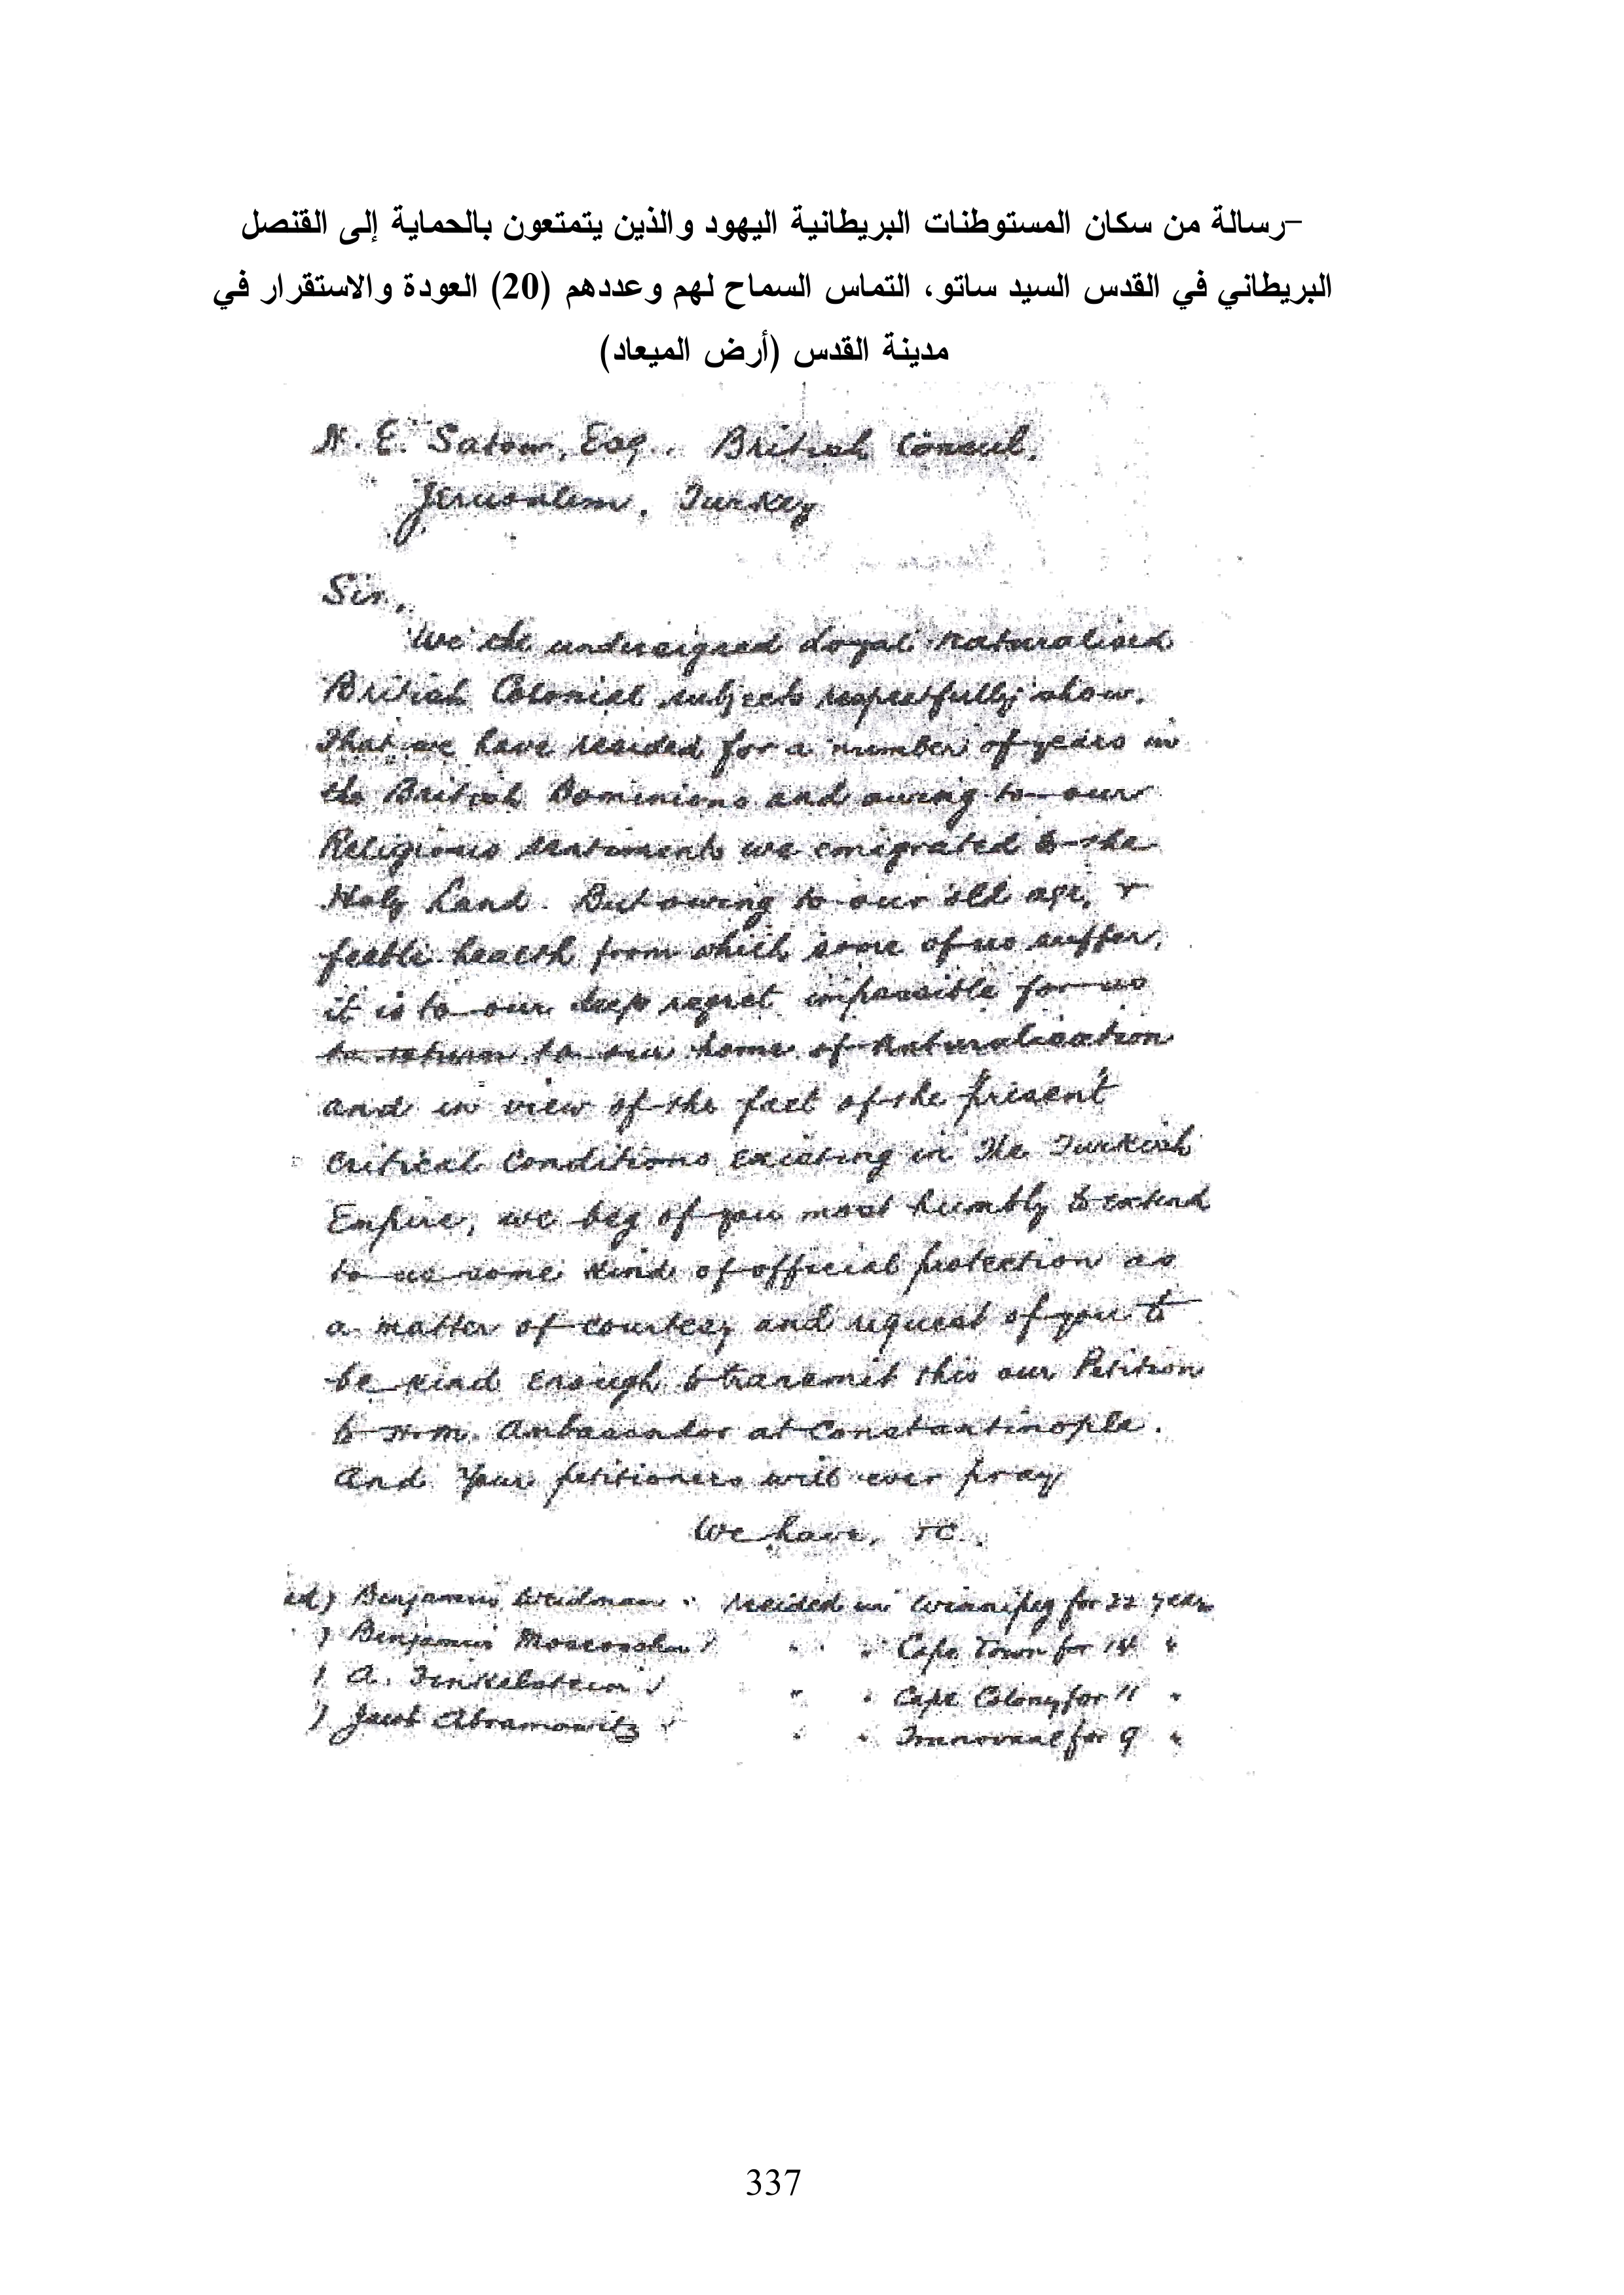 –رسالة من سكان المستوطنات البريطانية اليهود والذين يتمتعون بالحماية إلى القنصل
البريطاني في القدس السيد ساتو، التماس السماح لهم وعددهم (20) العودة والاستقرار في
مدينة القدس (أرض الميعاد)
E. Satow, Esq., British Consul,
Jerusalem, Turkey
Sir,
We the undersigned loyal naturalised
British Colonial subjects respectfully show.
That we have resided for a number of years in
the British Dominions and owing to our
Religious sentiments we emigrated to the
Holy Land. But owing to our old age, &
feeble health from which some of us suffer,
it is to our deep regret impossible for us
to return to our home of Naturalisation
and in view of the fact of the present
critical conditions existing in The Turkish
Empire, we beg of you most humbly to extend
to us some kind of official protection as
a matter of courtesy and request of you to
be kind enough to transmit this our Petition
to H.M. Ambassador at Constantinople.
And Your petitioners will ever pray
We have, &c.
Benjamin Weidman resided in Winnipeg for 22 years
) Benjamin " " Cape Town for 14 "
) A. Finkelstein " " Cape Colony for 11 "
) Jacob Abramowitz " " Transvaal for 9 "
337